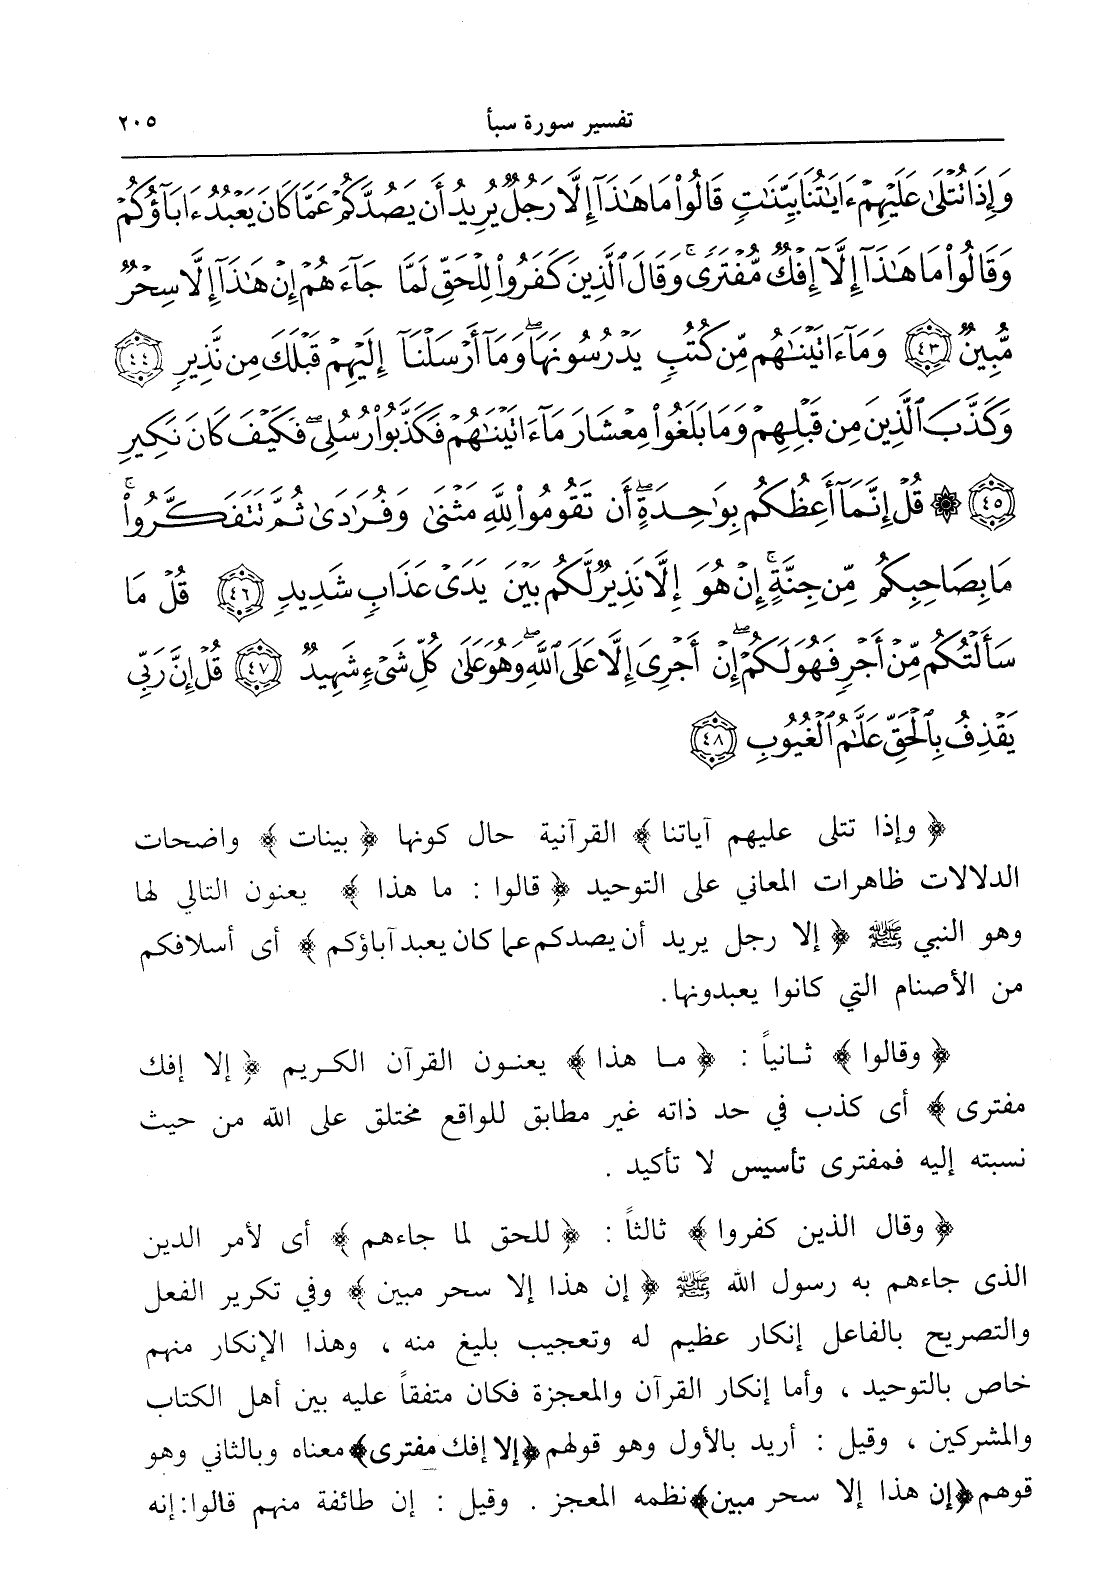 تفسير سورة سبأ
٢٠٥
وَإِذَا تُتْلَىٰ عَلَيْهِمْ ءَايَٰتُنَا بَيِّنَٰتٍ قَالُوا۟ مَا هَٰذَآ إِلَّا رَجُلٌ يُرِيدُ أَن يَصُدَّكُمْ عَمَّا كَانَ يَعْبُدُ ءَابَآؤُكُمْ
وَقَالُوا۟ مَا هَٰذَآ إِلَّآ إِفْكٌ مُّفْتَرًى ۚ وَقَالَ ٱلَّذِينَ كَفَرُوا۟ لِلْحَقِّ لَمَّا جَآءَهُمْ إِنْ هَٰذَآ إِلَّا سِحْرٌ
مُّبِينٌ ﴿٤٣﴾ وَمَآ ءَاتَيْنَٰهُم مِّن كُتُبٍ يَدْرُسُونَهَا ۖ وَمَآ أَرْسَلْنَآ إِلَيْهِمْ قَبْلَكَ مِن نَّذِيرٍ ﴿٤٤﴾
وَكَذَّبَ ٱلَّذِينَ مِن قَبْلِهِمْ وَمَا بَلَغُوا۟ مِعْشَارَ مَآ ءَاتَيْنَٰهُمْ فَكَذَّبُوا۟ رُسُلِى ۖ فَكَيْفَ كَانَ نَكِيرِ
﴿٤٥﴾ ۞ قُلْ إِنَّمَآ أَعِظُكُم بِوَٰحِدَةٍ ۖ أَن تَقُومُوا۟ لِلَّهِ مَثْنَىٰ وَفُرَٰدَىٰ ثُمَّ تَتَفَكَّرُوا۟ ۚ
مَا بِصَاحِبِكُم مِّن جِنَّةٍ ۚ إِنْ هُوَ إِلَّا نَذِيرٌ لَّكُم بَيْنَ يَدَىْ عَذَابٍ شَدِيدٍ ﴿٤٦﴾ قُلْ مَا
سَأَلْتُكُم مِّنْ أَجْرٍ فَهُوَ لَكُمْ ۖ إِنْ أَجْرِىَ إِلَّا عَلَى ٱللَّهِ ۖ وَهُوَ عَلَىٰ كُلِّ شَىْءٍ شَهِيدٌ ﴿٤٧﴾ قُلْ إِنَّ رَبِّى
يَقْذِفُ بِٱلْحَقِّ عَلَّٰمُ ٱلْغُيُوبِ ﴿٤٨﴾
﴿ وإذا تتلى عليهم آياتنا ﴾ القرآنية حال كونها ﴿ بينات ﴾ واضحات
الدلالات ظاهرات المعاني على التوحيد ﴿ قالوا : ما هذا ﴾ يعنون التالي لها
وهو النبي ﷺ ﴿ إلا رجل يريد أن يصدكم عما كان يعبد آباؤكم ﴾ أى أسلافكم
من الأصنام التي كانوا يعبدونها.
﴿ وقالوا ﴾ ثانياً : ﴿ ما هذا ﴾ يعنون القرآن الكريم ﴿ إلا إفك
مفترى ﴾ أى كذب في حد ذاته غير مطابق للواقع مختلق على الله من حيث
نسبته إليه فمفترى تأسيس لا تأكيد .
﴿ وقال الذين كفروا ﴾ ثالثاً : ﴿ للحق لما جاءهم ﴾ أى لأمر الدين
الذى جاءهم به رسول الله ﷺ ﴿ إن هذا إلا سحر مبين ﴾ وفي تكرير الفعل
والتصريح بالفاعل إنكار عظيم له وتعجيب بليغ منه ، وهذا الإنكار منهم
خاص بالتوحيد ، وأما إنكار القرآن والمعجزة فكان متفقاً عليه بين أهل الكتاب
والمشركين ، وقيل : أريد بالأول وهو قولهم ﴿إلا إفك مفترى﴾ معناه وبالثاني وهو
قوهم ﴿إن هذا إلا سحر مبين﴾ نظمه المعجز . وقيل : إن طائفة منهم قالوا: إنه